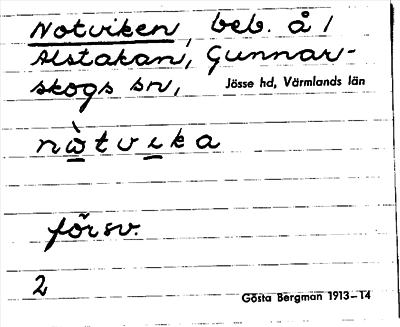 Notviken, beb. å /
Alstakan, Gunnar-
skogs sn, Jösse hd, Värmlands län
nὼtvika
försv.
2
Gösta Bergman 1913–14